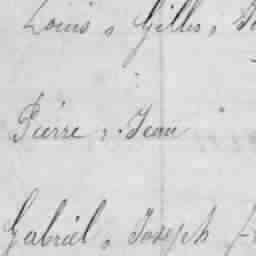 Louis, Gilles,
Pierre, Jean
Gabriel, Joseph